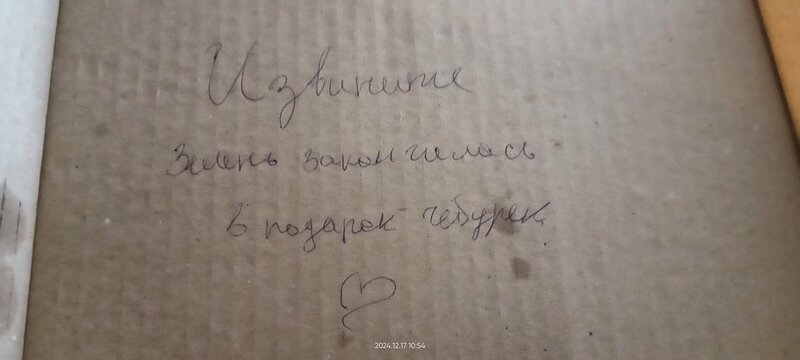 Извините
Зелень закончилась
в подарок чебурек
2024.12.17 10:54